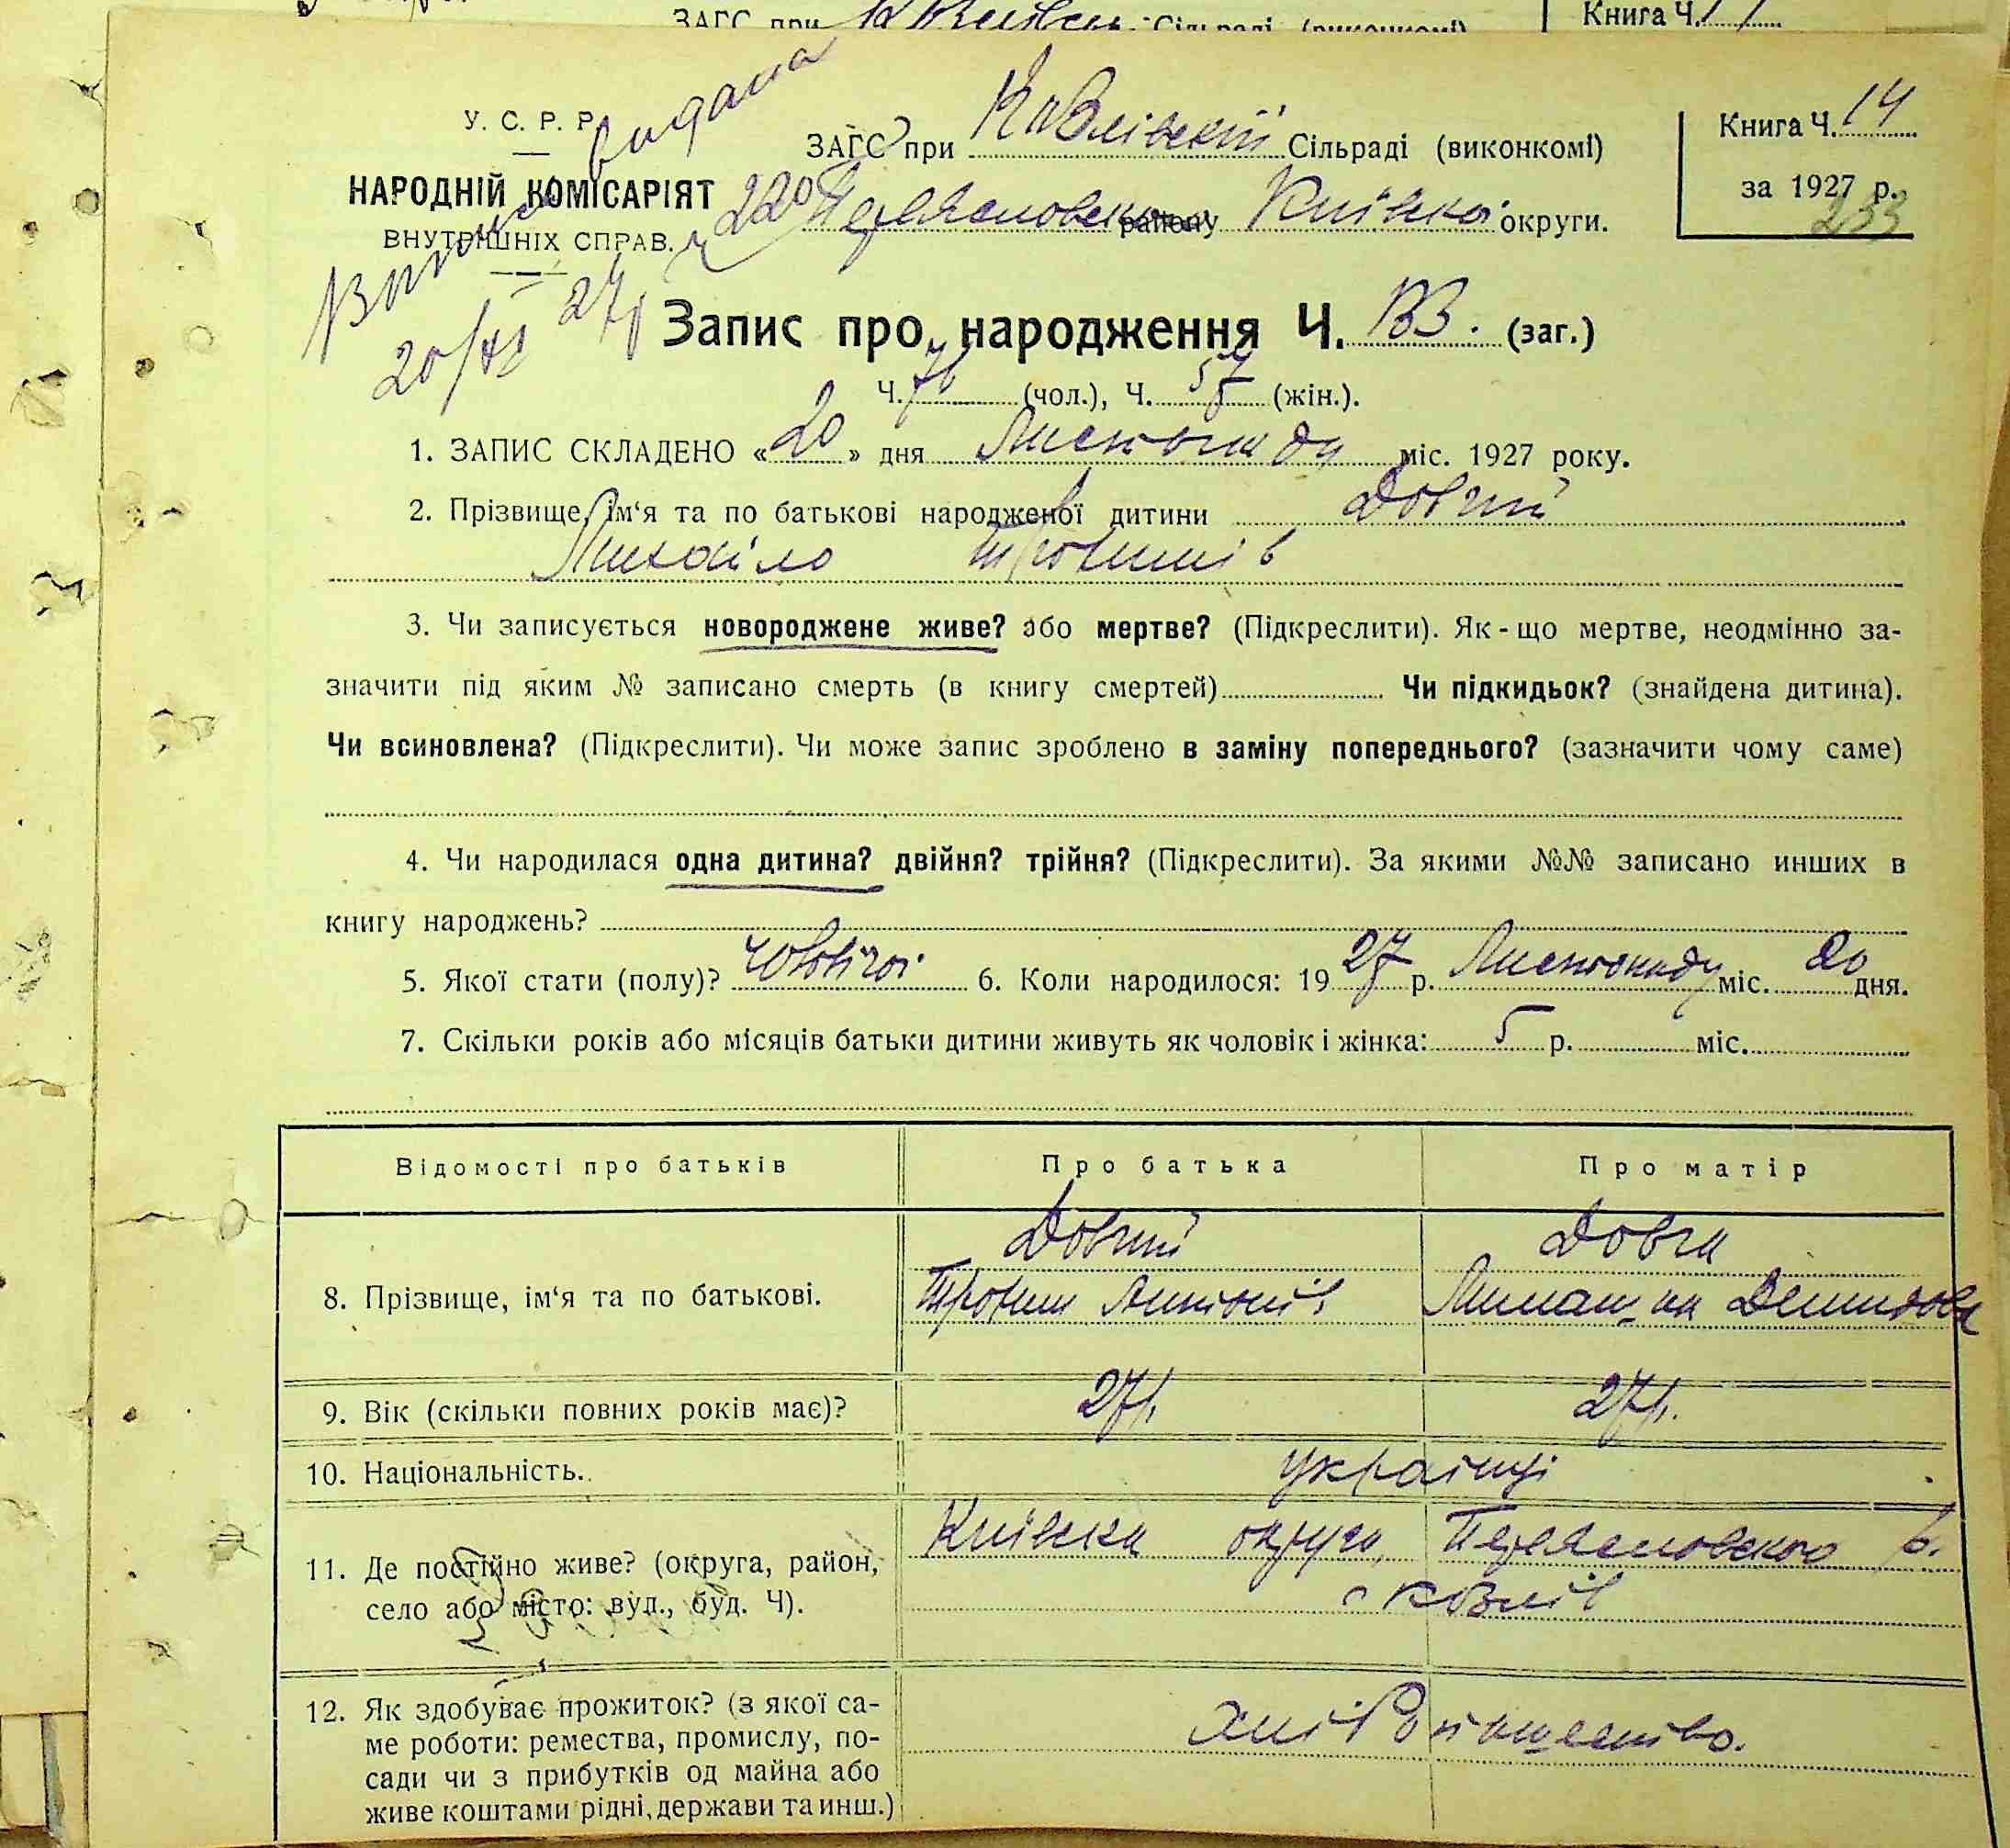 ЗАГС при Сільраді (виконкомі) Книга Ч.
У. С. Р. Р.
НАРОДНІЙ КОМІСАРІЯТ
ВНУТРІШНІХ СПРАВ.
видана
20/XI 27р
ЗАГС при Ковлівській Сільраді (виконкомі)
Переяславськ району Київської округи.
Книга Ч. 14
за 1927 р.
233
Запис про народження Ч. 133. (заг.)
Ч. 76 (чол.), Ч. 57 (жін.).
1. ЗАПИС СКЛАДЕНО «20» дня Листопаду міс. 1927 року.
2. Прізвище, ім‘я та по батькові народженої дитини Довгий
Михайло Трохимів
3. Чи записується новороджене живе? або мертве? (Підкреслити). Як-що мертве, неодмінно за-
значити під яким № записано смерть (в книгу смертей) Чи підкидьок? (знайдена дитина).
Чи всиновлена? (Підкреслити). Чи може запис зроблено в заміну попереднього? (зазначити чому саме)
4. Чи народилася одна дитина? двійня? трійня? (Підкреслити). За якими №№ записано инших в
книгу народжень?
5. Якої стати (полу)? Чоловічої 6. Коли народилося: 1927 р. Листопаду міс. 20 дня.
7. Скільки років або місяців батьки дитини живуть як чоловік і жінка: 5 р. міс.
Відомості про батьків Про батька Про матір
8. Прізвище, ім‘я та по батькові. Довгий Довга
Трохим Антонів Демидова
9. Вік (скільки повних років має)? 27р. 27р.
10. Національність. українці
11. Де постійно живе? (округа, район, Київська округа, Переяславського р.
село або місто: вул., буд. Ч). с Козлів
12. Як здобуває прожиток? (з якої са-
ме роботи: ремества, промислу, по-
сади чи з прибутків од майна або
живе коштами рідні, держави та инш.)